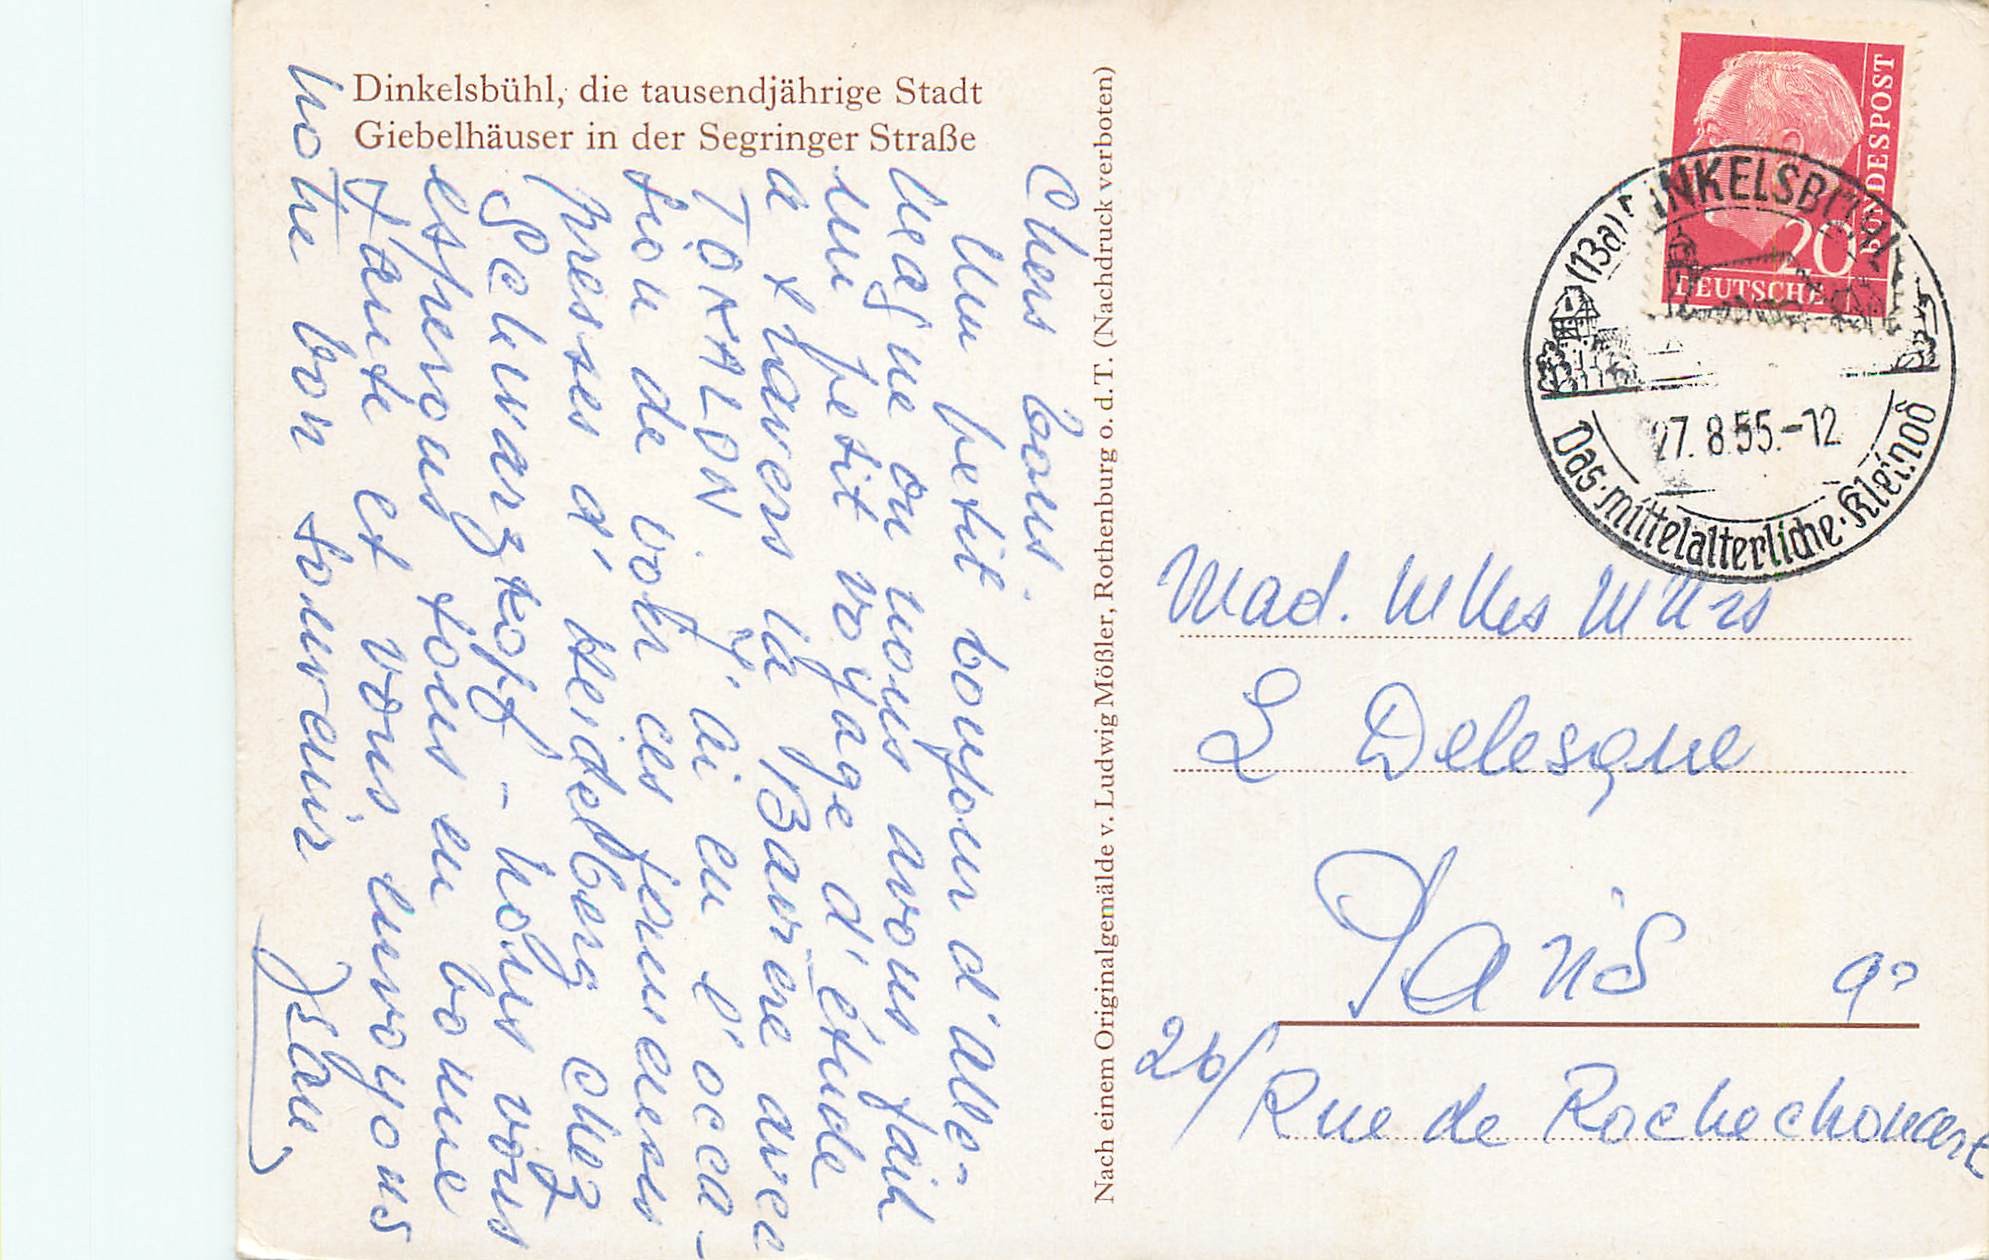 Dinkelsbühl, die tausendjährige Stadt
Giebelhäuser in der Segringer Straße
Chers tous.
Un petit bonjour d'Alle-
magne où nous avons fait
un petit voyage d'étude
à travers la Bavière avec
TOATALON j'ai eu l'occa-
sion de voir ces fameuses
presses d'Heidelberg chez
Schwarzkopf - nous vous
espérons tous en bonne
santé et vous envoyons
notre bon souvenir
Nach einem Originalgemälde v. Ludwig Mößler, Rothenburg o. d. T. (Nachdruck verboten)
BUNDESPOST
20
DEUTSCHE
(13a) DINKELSBÜHL
27.8.55.-12
Das mittelalterliche Kleinod
Mad. Mlles MMrs
L Delesque
Paris 9e
26/ Rue de Rochechouart